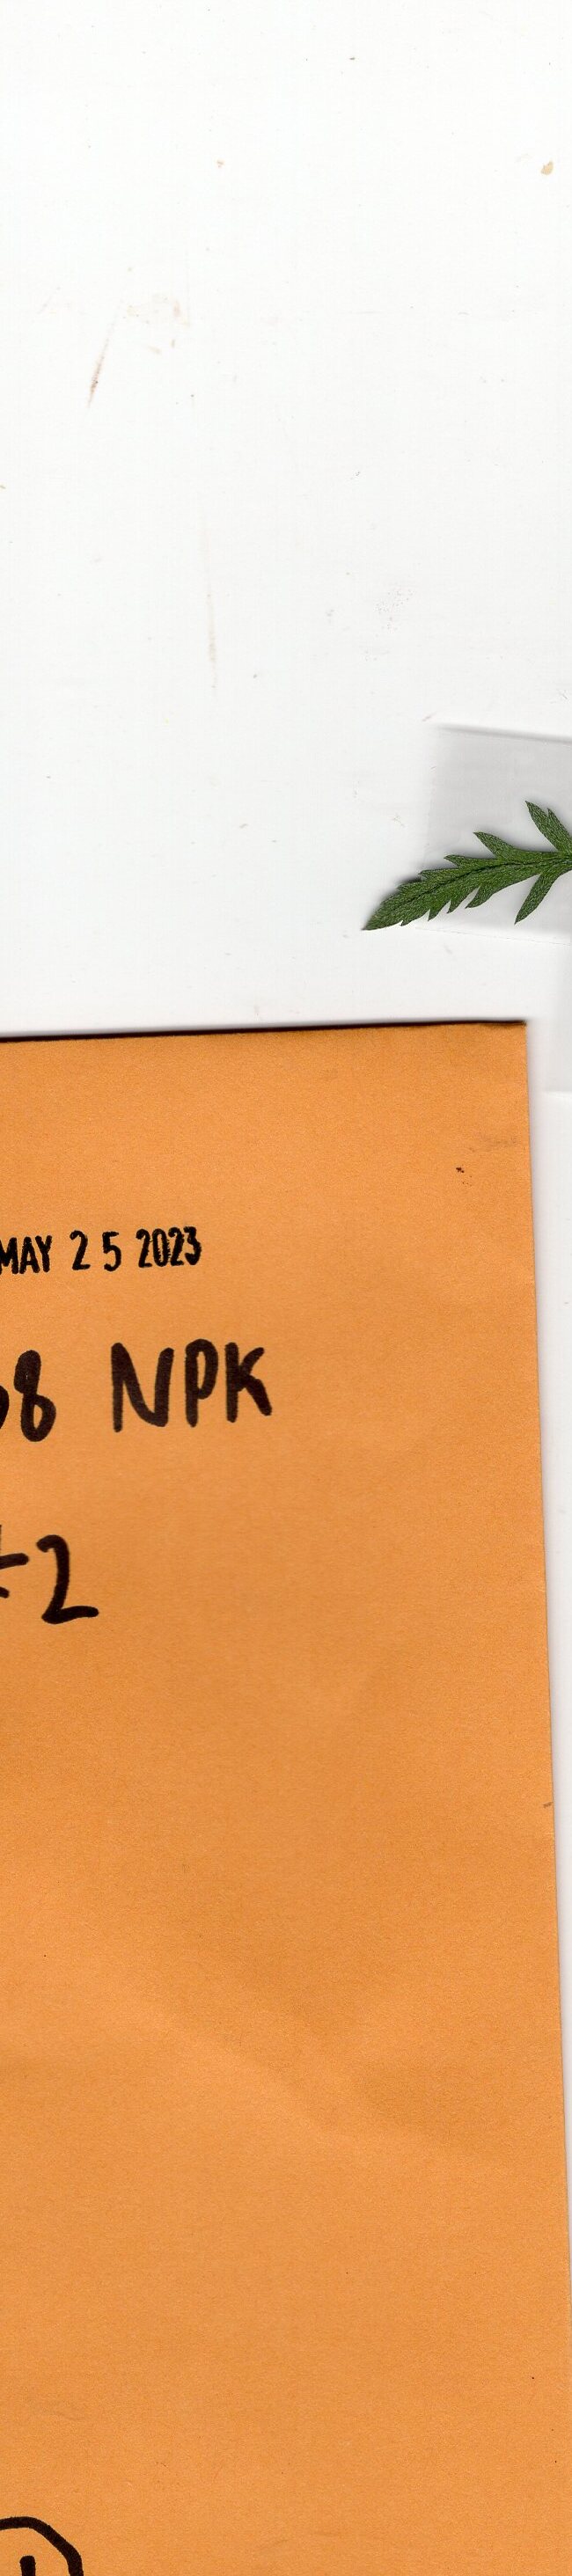 MAY 25 2023
8 NPK
2